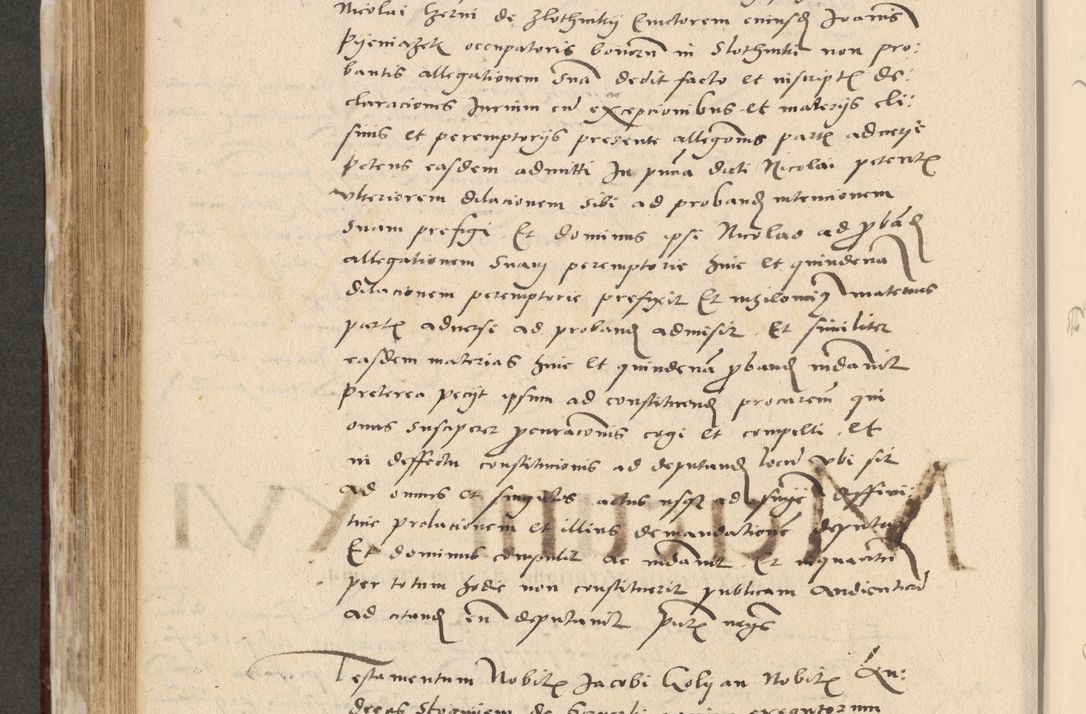 Nicolai Czerni de Zlothniky Emctorem eiusd Joannis
Pyeniazek occupatoris bonorum in Slothniki non pro:
bantis allegationem suam dedit facto et in scriptis de:
claraciones Jurium cum exepcionibus et materys eli:
sivis et peremptorys presente allegōnis parte adverse
petens easdem admitti In pñcia dicti Nicolai petentis
ulteriorem dilacionem sibi ad proband intencionem
suam prefigi Et dominus ipse Nicolao ad proband
allegationem suam peremptorie hinc et quindena
dilacionem peremptorie prefixit Et nihilominus materias
partis adverse ad proband admisit Et similiter
easdem materias hinc et quindenam proband mdavit
Preterea peciit ipsum ad constituend procurem qui
onus susciperet procuracionis cogi et compelli Et
in deffectu constitucionis ad deputand locum ubi sit
ad omnes et singulos actus usque ad sniē diffini:
tive prolacionem et illius demandationē deputat
Et dominus compulit ac mdavit Et inquantum
per totum hodie non constituerit publicam Audientiam
ad citand eum deputavit Pñtē
Testamentum Nobilis Jacobi Golyan Nobilis An:
dreas de executorum